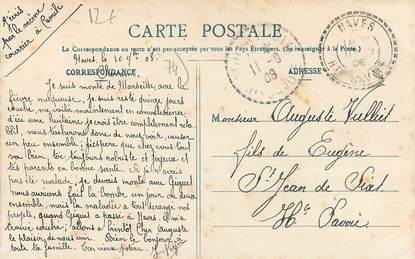 J'écris
par le même
courrier à Camille
12 €
CARTE POSTALE
La Correspondance au recto n'est pas acceptée par tous les Pays Étrangers. (Se renseigner à la Poste.)
Naves, le 10 7bre 08.
CORRESPONDANCE
ADRESSE
NAVES
08
11-9
08
Je suis monté de Marseille avec la
fièvre muqueuse. Je suis resté quinze jours
couché, me voilà maintenant en convalescence,
d'ici une huitaine je vais être complètement réta-
bli, nous tâcherons donc de nous voir, causer
un peu ensemble; j'espère que chez vous tout
va bien, toi toujours robuste et joyeux et
tes parents en bonne santé. Si je n'avais
pas été malade, je devais monter avec Giguet
nous aurions fait la bombe un jour ou deux
ensemble, mais la maladie a tout dérangé nos
projets, quand Giguet a passé à Naves, il m'a
trouvé couché; allons à bientôt Cher Auguste
le plaisir de nous voir. Bien le bonjour à
toute la famille. Ton vieux poteau.
Monsieur Auguste Vulliet
fils de Eugène
St Jean de Sixt
Hte Savoie